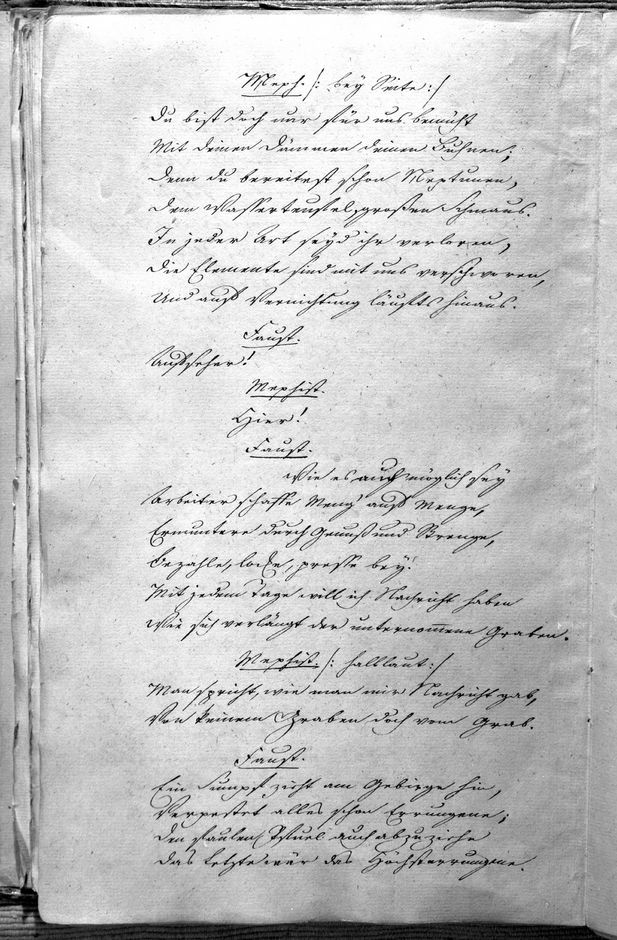 Meph. /: bey Seite :/
Du bist doch nur für uns bemüht
Mit deinen Dämmen deinen Buhnen;
Denn du bereitest schon Neptunen,
Dem Wasserteufel, großen Schmaus.
In jeder Art seyd ihr verloren,
Die Elemente sind mit uns verschworen,
Und auf Vernichtung läufts hinaus.
Faust.
Aufseher!
Mephist.
Hier!
Faust.
Wie es auch möglich sey
Arbeiter schaffe Meng' auf Menge,
Ermuntere durch Genuß und Strenge,
Bezahle, locke, presse bey!
Mit jedem Tage will ich Nachricht haben
Wie sich verlängt der unternommene Graben.
Mephist. /: halblaut :/
Man spricht, wie man mir Nachricht gab,
Von keinem Graben doch vom Grab.
Faust.
Ein Sumpf zieht am Gebirge hin,
Verpestet alles schon Errungene;
Den faulen Pfuel auch abzuziehn
Das letzte wär das Höchsterrungene.